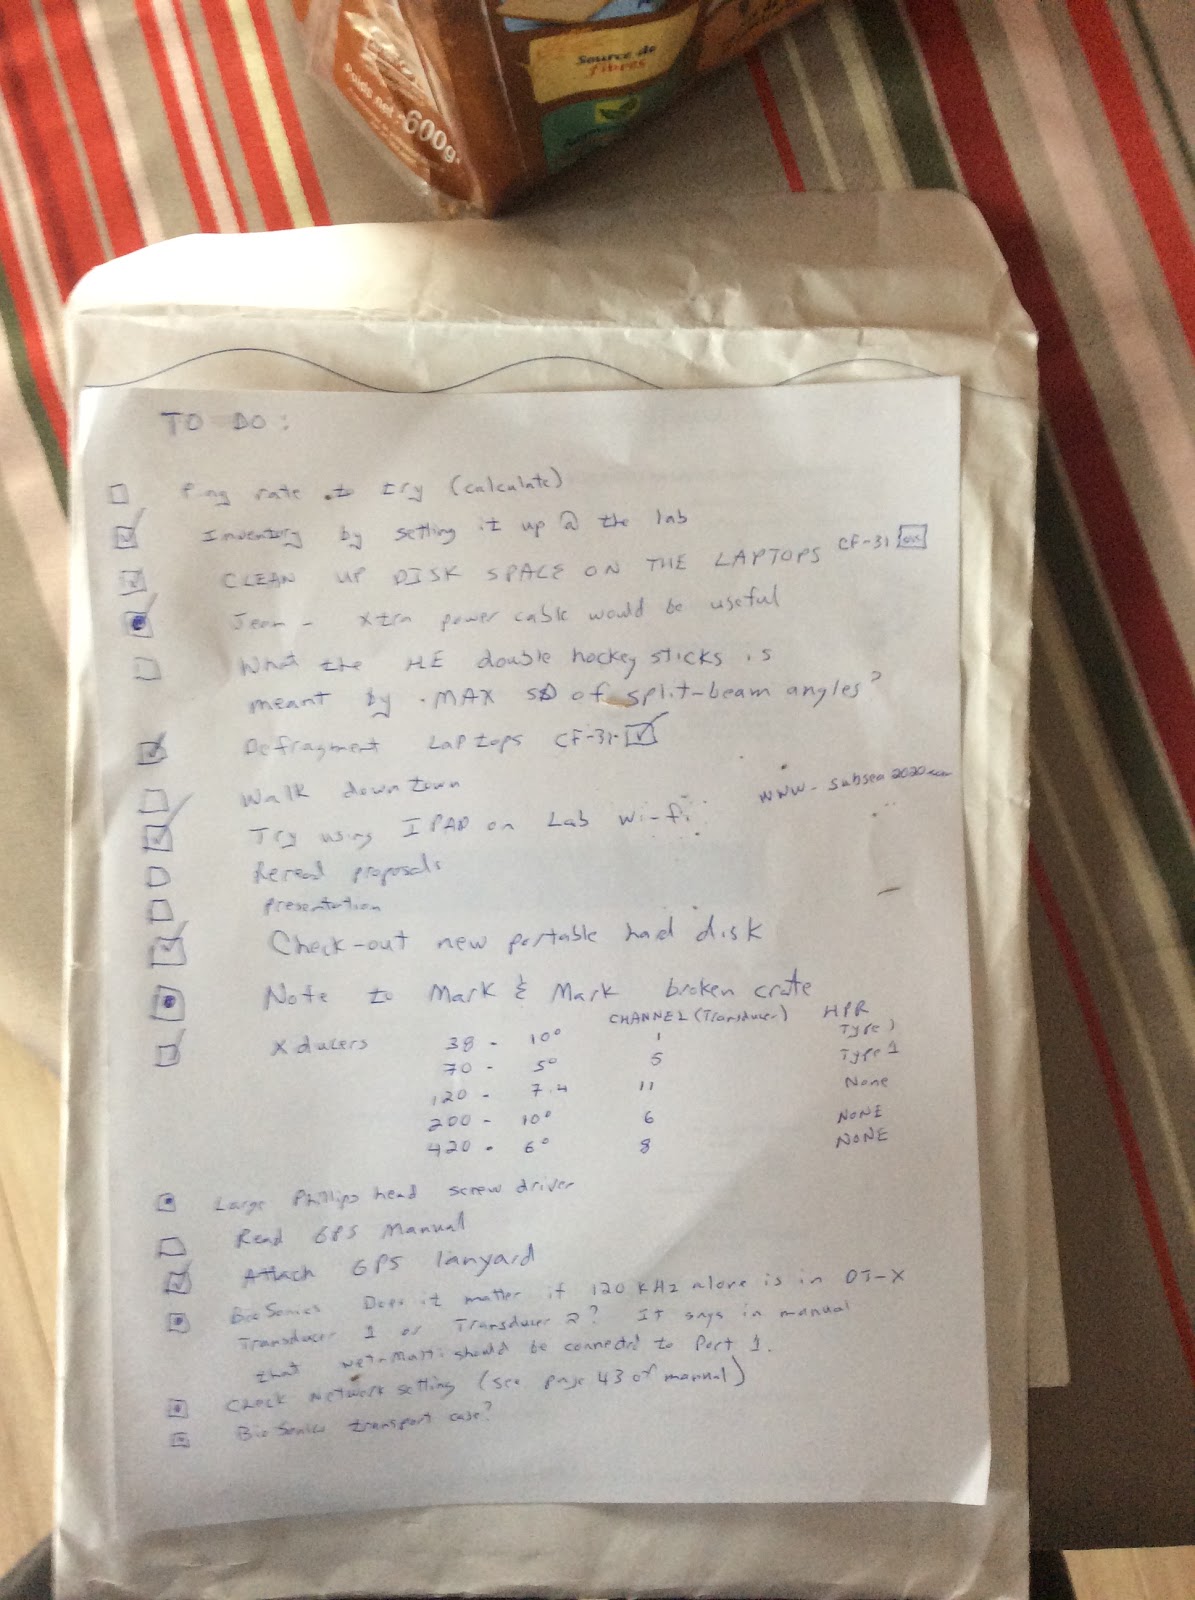 Source de
fibres
Poids net - 600g.
TO DO:
Ping rate to try (calculate)
Inventory by setting it up @ the lab
CLEAN UP DISK SPACE ON THE LAPTOPS CF-31
Jean - Xtra power cable would be useful
What the HE double hockey sticks is
meant by MAX SD of split-beam angles?
Defragment Laptops CF-31
Walk downtown
www.subsea2020.com
Try using IPAD on Lab Wi-fi
Reread proposals
Presentation
Check-out new portable hard disk
Note to Mark & Mark broken crate
CHANNEL (Transducer) HPR
Xducers 38 - 10° 1 Type 1
70 - 5° 5 Type 1
120 - 7.4 11 None
200 - 10° 6 NONE
420 - 6° 8 NONE
Large Phillips head screw driver
Read GPS Manual
Attach GPS lanyard
BioSonics Does it matter if 120 kHz alone is in DT-X
Transducer 1 or Transducer 2? It says in manual
that should be connected to Port 1.
Check Network setting (see page 43 of manual)
BioSonics transport case?